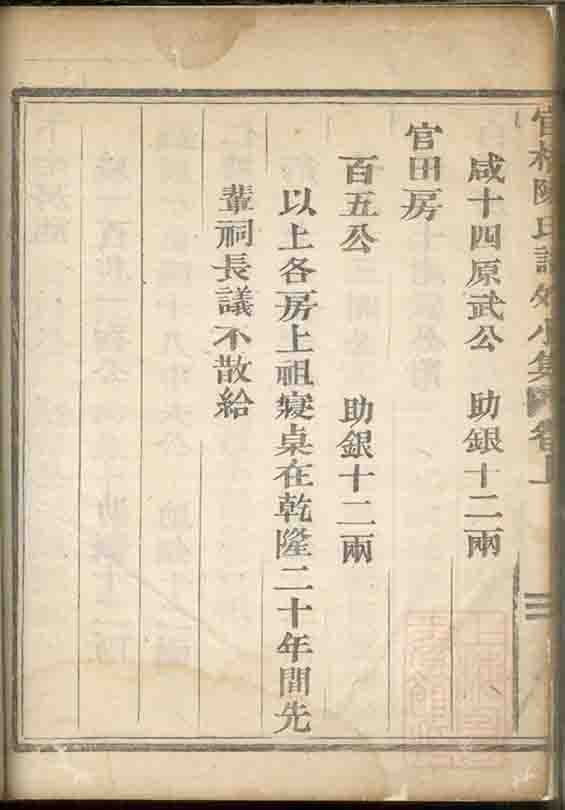 陳氏譜外小集 卷上
咸十四原武公 助銀十二兩
官田房
百五公 助銀十二兩
以上各房上祖寢桌在乾隆二十年間先
輩祠長議不散給